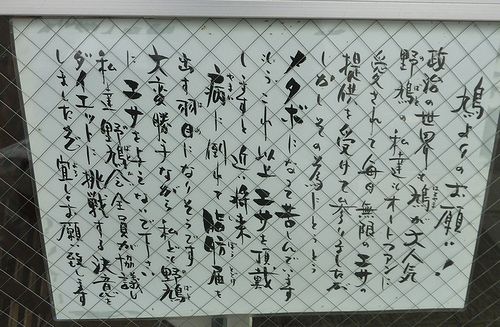 鳩よりのお願い!
政治の世界も鳩が大人気
野鳩の私達もオートフアンに
愛されて毎日無限のエサの
提供を受けて参りましたが
しかしその とうとう
メタボになって苦しんでいます
もうこれ以上エサを頂戴
しますと近い将来
病に倒れて脂肪届を
出す羽目になりそうです
大変勝手ながら私ども野鳩
にエサを与えないで下さい
私達野鳩会全員が協議し
ダイエットに挑戦する決意を
しましたので宜しくお願い致します